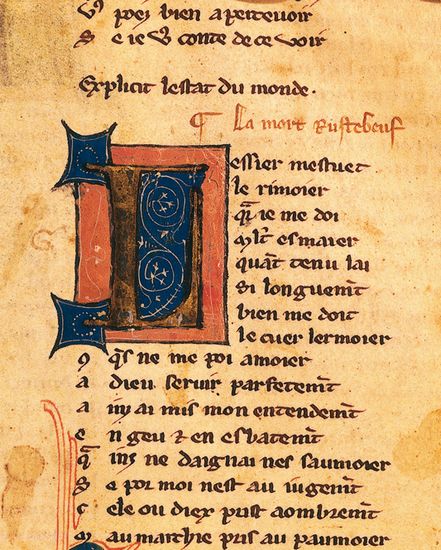 Vˢ poez bien aperceuoir
S e ie vˢ conte de ce voir
Explicit lestat du monde.
¶ La mort Rustebeuf
L essier mestuet
le rimoier
Qr ie me doi
mlt esmaier
quāt tenu lai
si longuemt̄
bien me doit
le cuer lermoier
ꝯ qˢ ne me poi amoier
a dieu seruir parfetemt̄
a ins ai mis mon entendemt̄
e n geu ⁊ en esbatemt̄
q̄ ins ne daignai nes saumoier
s e por moi nest au iugemt̄
c ele ou diex prist aombremt̄
m au marchie pris au paumoier